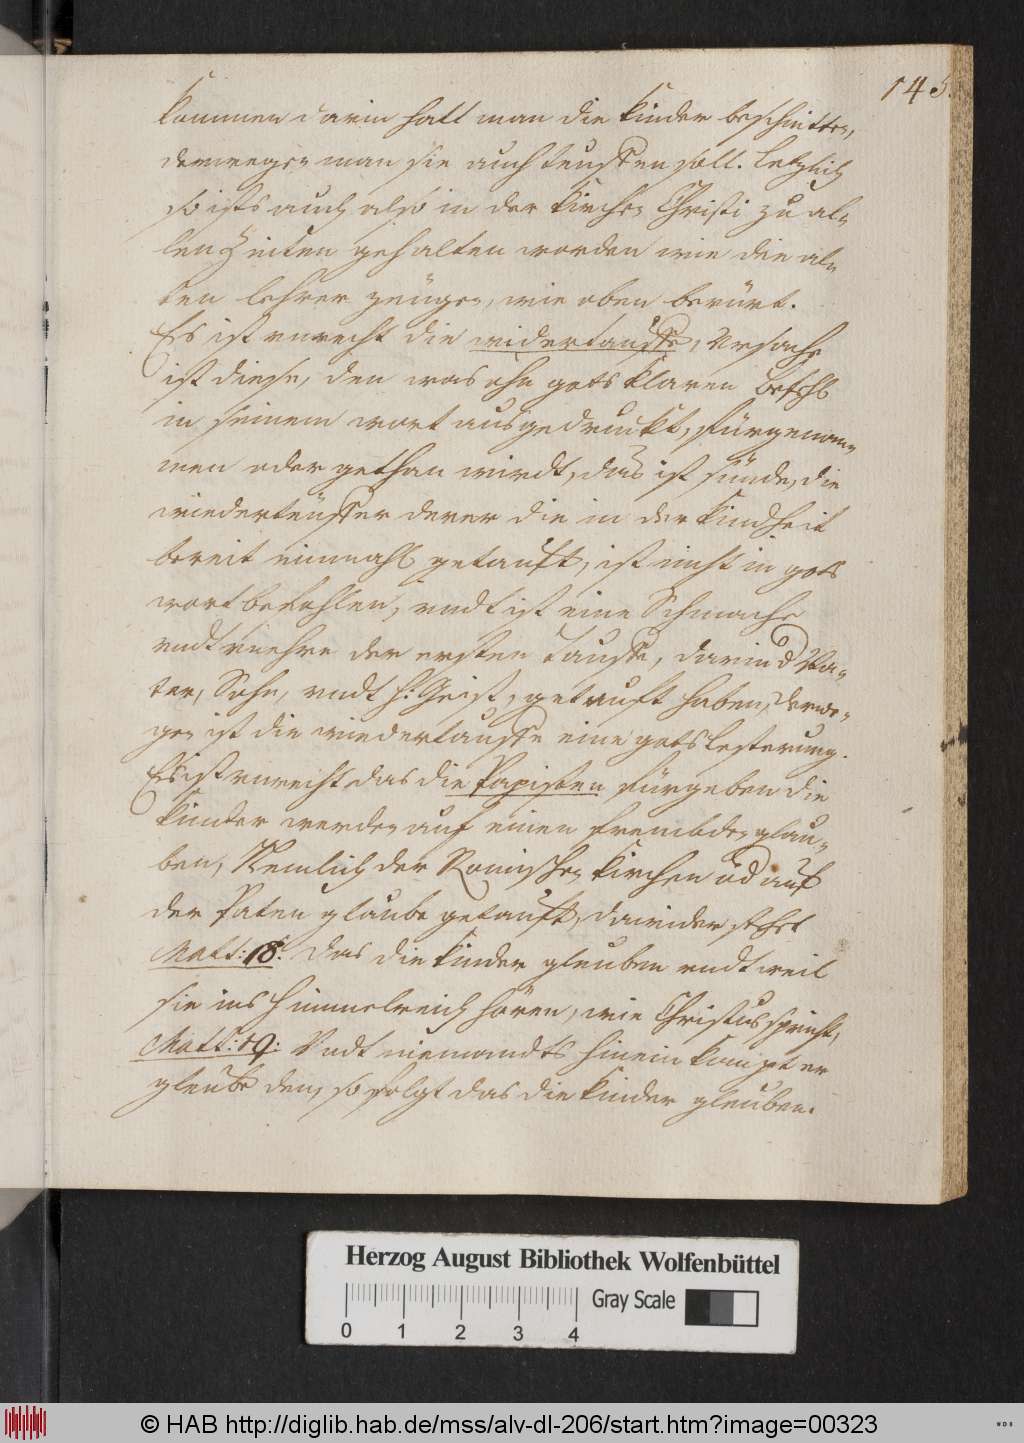 145.
kommen darin hatt man die kinder beschnitten,
derwegen man sie auch teuffen soll. Letzlich
so ists auch also in der kirchen Christi zu al-
len Zeiten gehalten worden wie die al-
ten lehrer zeügen, wie oben berürt.
Es ist unrecht die widertauffe, Ursache
ist diese, den was ohn gots klaren befehl
in seinem wort ausgedruckt, fürgenom-
men oder gethan wirdt, das ist sünde, die
wiederteüffer derer die in der kindheit
bereit einmahl getauft, ist nicht in gots
wort befohlen, undt ist eine Schmache
undt unehre der ersten tauffe, darin d Va-
ter, Sohn, undt H: Geist, getauft haben, derwe-
gen ist die wiedertauffe eine gotslesterung.
Es ist unrecht das die Papisten fürgeben die
kinder werden auf einen frembden glau-
ben, Nemlich der Romischen kirchen od auf
der Paten glaube getauft, dawider stehet
Matt: 18: das die kinder gleuben undt weil
sie ins himmelreich hören, wie Christus spricht,
Matt: 19: Undt niemandts hinein kompt er
gleube den, so folgt das die kinder gleuben.
Herzog August Bibliothek Wolfenbüttel
0 1 2 3 4 Gray Scale
© HAB http://diglib.hab.de/mss/alv-dl-206/start.htm?image=00323